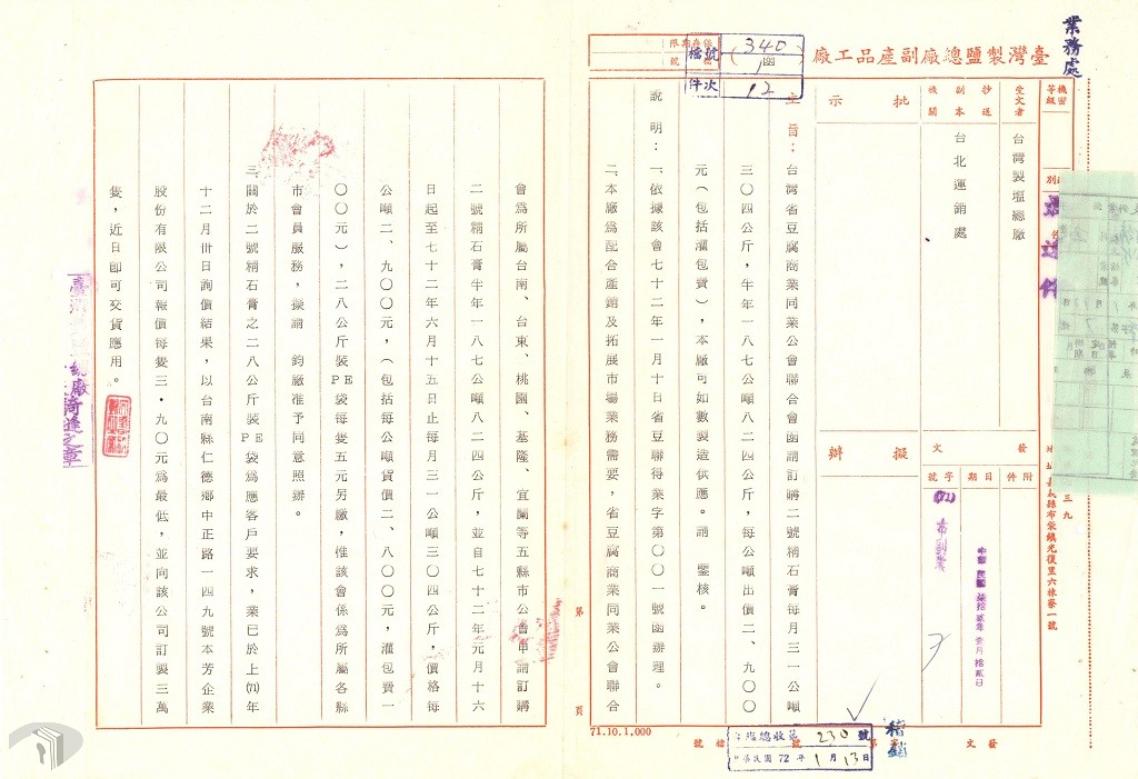 業務處
臺灣製鹽總廠副產品工廠
保存期限
檔號
340
函
1
件次
12
機密等級
受文者
台灣製塩總廠
抄送副本機關
台北運銷處
批示
擬辦
發文
附件
日期
字號
中華民國柒拾貳年壹月拾貳日
(72)
布副業
縣布袋鎮光復里六棟寮一號
主旨：台灣省豆腐商業同業公會聯合會函請訂購二號精石膏每月三一公噸
三〇四公斤，半年一八七公噸八二四公斤，每公噸出價二、九〇〇
元（包括灌包費），本廠可如數製造供應。請　鑒核。
說明：一、依據該會七十二年一月十日省豆聯得業字第〇〇一號函辦理。
二、本廠為配合產銷及拓展市場業務需要，省豆腐商業同業公會聯合
第　頁
會為所屬台南、台東、桃園、基隆、宜蘭等五縣市公會申請訂購
二號精石膏半年一八七公噸八二四公斤，並自七十二年元月十六
日起至七十二年六月十五日止每月三一公噸三〇四公斤，價格每
公噸二、九〇〇元，（包括每公噸貨價二、八〇〇元，灌包費一
〇〇元），二八公斤裝PE袋每隻五元另繳，惟該會係為所屬各縣
市會員服務，擬請　鈞廠准予同意照辦。
三、關於二號精石膏之二八公斤裝PE袋為應客戶要求，業已於上(71)年
十二月卅日詢價結果，以台南縣仁德鄉中正路一四九號本芳企業
股份有限公司報價每隻三・九〇元為最低，並向該公司訂製三萬
隻，近日即可交貨應用。
71.10.1,000
總收第230號
中華民國72年1月13日
發文
檔號